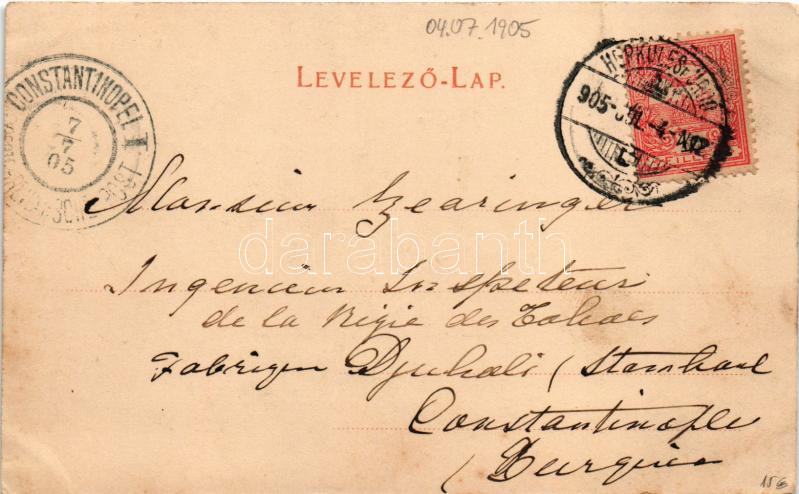 04.07.1905
LEVELEZŐ-LAP.
CONSTANTINOPEL
7/7
05
905 JUL -4
darabanth
Monsieur Gearinger
Ingenieur Inspecteur
de la Régie des Tabacs
Fabrique Djubali / Stamboul
Constantinople
/ Turquie
156